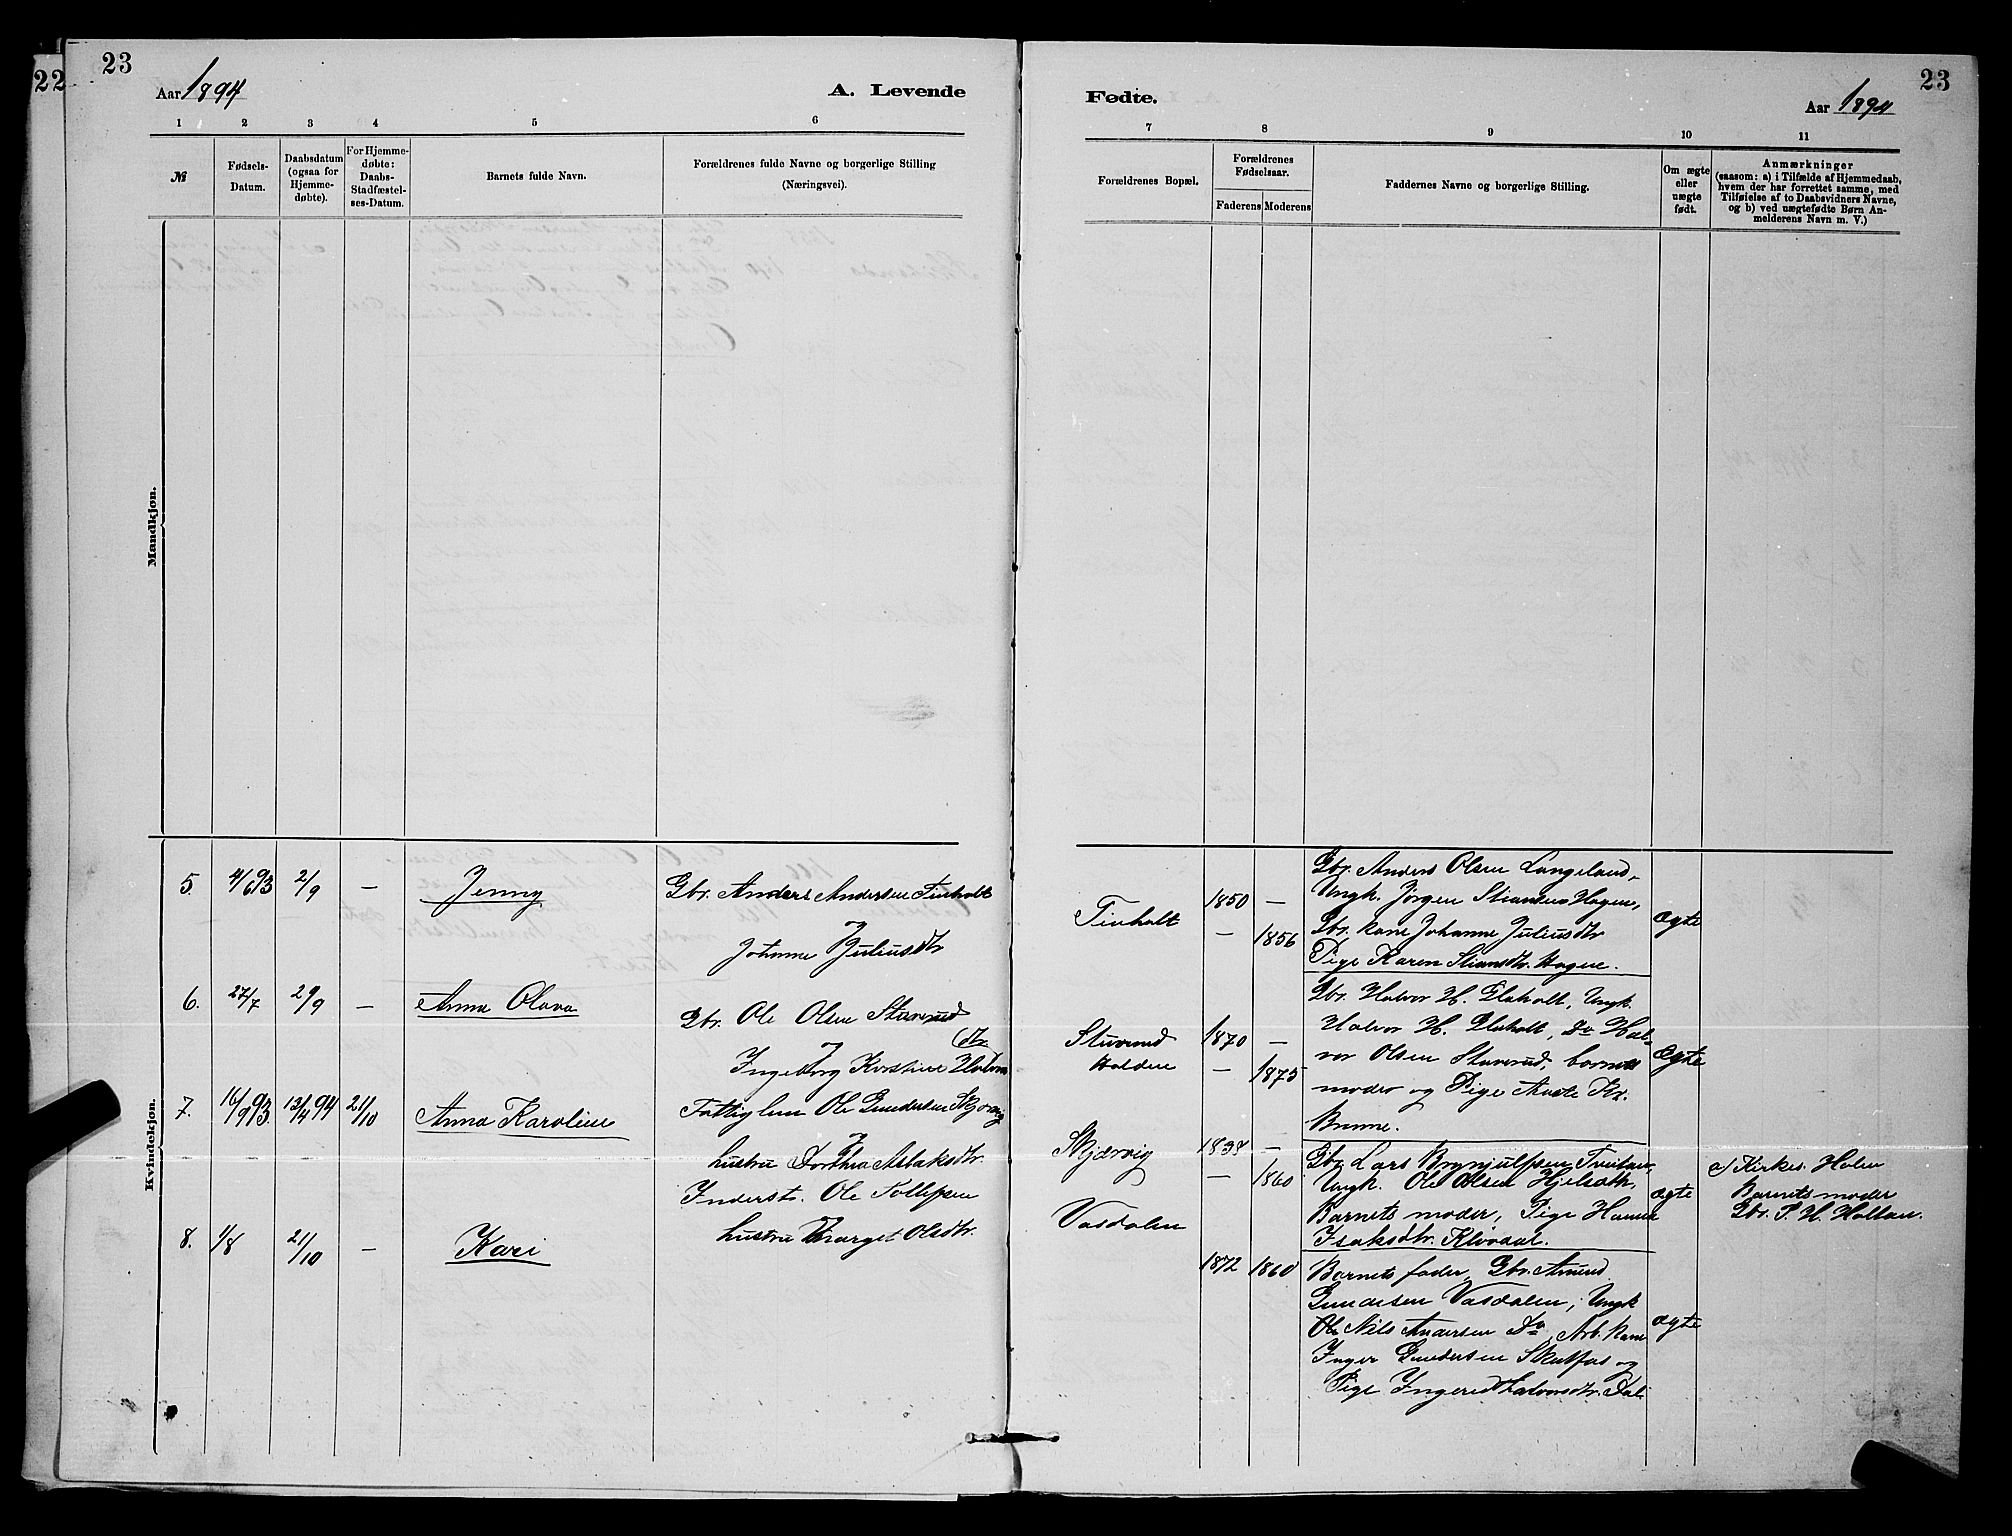 22
23
Aar 1894
A. Levende
1
2
3
4
5
6
№
Fødsels-
Datum.
Daabsdatum
(ogsaa for
Hjemme-
døbte).
For Hjemme-
døbte:
Daabs-
Stadfæstel-
ses-Datum.
Barnets fulde Navn.
Forældrenes fulde Navne og borgerlige Stilling
(Næringsvei).
Mandkjøn.
Kvindekjøn.
5. 4/6 93 2/9 — Jenny Gbr. Anders Andersen Tinholt
Johanne Juliusdtr
6. 27/7 2/9 — Anna Olava Gbr. Ole Olsen Stuverud
Ingeborg Kirstine Halvors
dtr
7. 16/9 93. 13/4 94 21/10 Anna Karoline Fattiglem Ole Gundersen Skjærvig
hustru Dorthea Aslaksdtr.
8. 1/8 21/10 — Kari Inderst. Ole Tollefsen
hustru Marget Olsdtr.
23
Fødte.
Aar 1894
7
8
9
10
11
Forældrenes Bopæl.
Forældrenes
Fødselsaar.
Faderens
Moderens
Faddernes Navne og borgerlige Stilling.
Om ægte
eller
uægte
født.
Anmærkninger
(saasom: a) i Tilfælde af Hjemmedaab,
hvem der har forrettet samme, med
Tilføielse af to Daabsvidners Navne,
og b) ved uægtefødte Børn An-
melderens Navn m. V.)
Tinholt 1850 —
— 1856
Gbr. Anders Olsen Langeland,
Ungk. Jörgen Stiansen Hagen,
Gbr. kone Johanne Juliusdtr
Pige Karen Stiansdtr. Hagen.
ægte
Stuverud
Holden
1870 —
— 1875
Gbr. Halvor H. Gluholt, Ungk.
Halvor H. Gluholt, Do Hal-
vor Olsen Stuverud, barnets
moder og Pige Aaste Kr.
ægte
Skjærvig 1838 —
— 1860
Gbr. Lars Brynjulfsen
Ungk. Ole Olsen
Barnets moder, Pige Hanna
Isaksdtr. Klovdal.
ægte
I Kirkes. Holm
Barnets moder
Gbr. P. H. Holtan.
Vasdalen
1872 1860
Barnets fader, Gbr. Amund
Gundersen Vasdalen, Ungk
Nils Andersen Do, Arb. kone
Inger Gundersen Skotfos og
Pige Ingerid Halvorsdtr. Dal
ægte